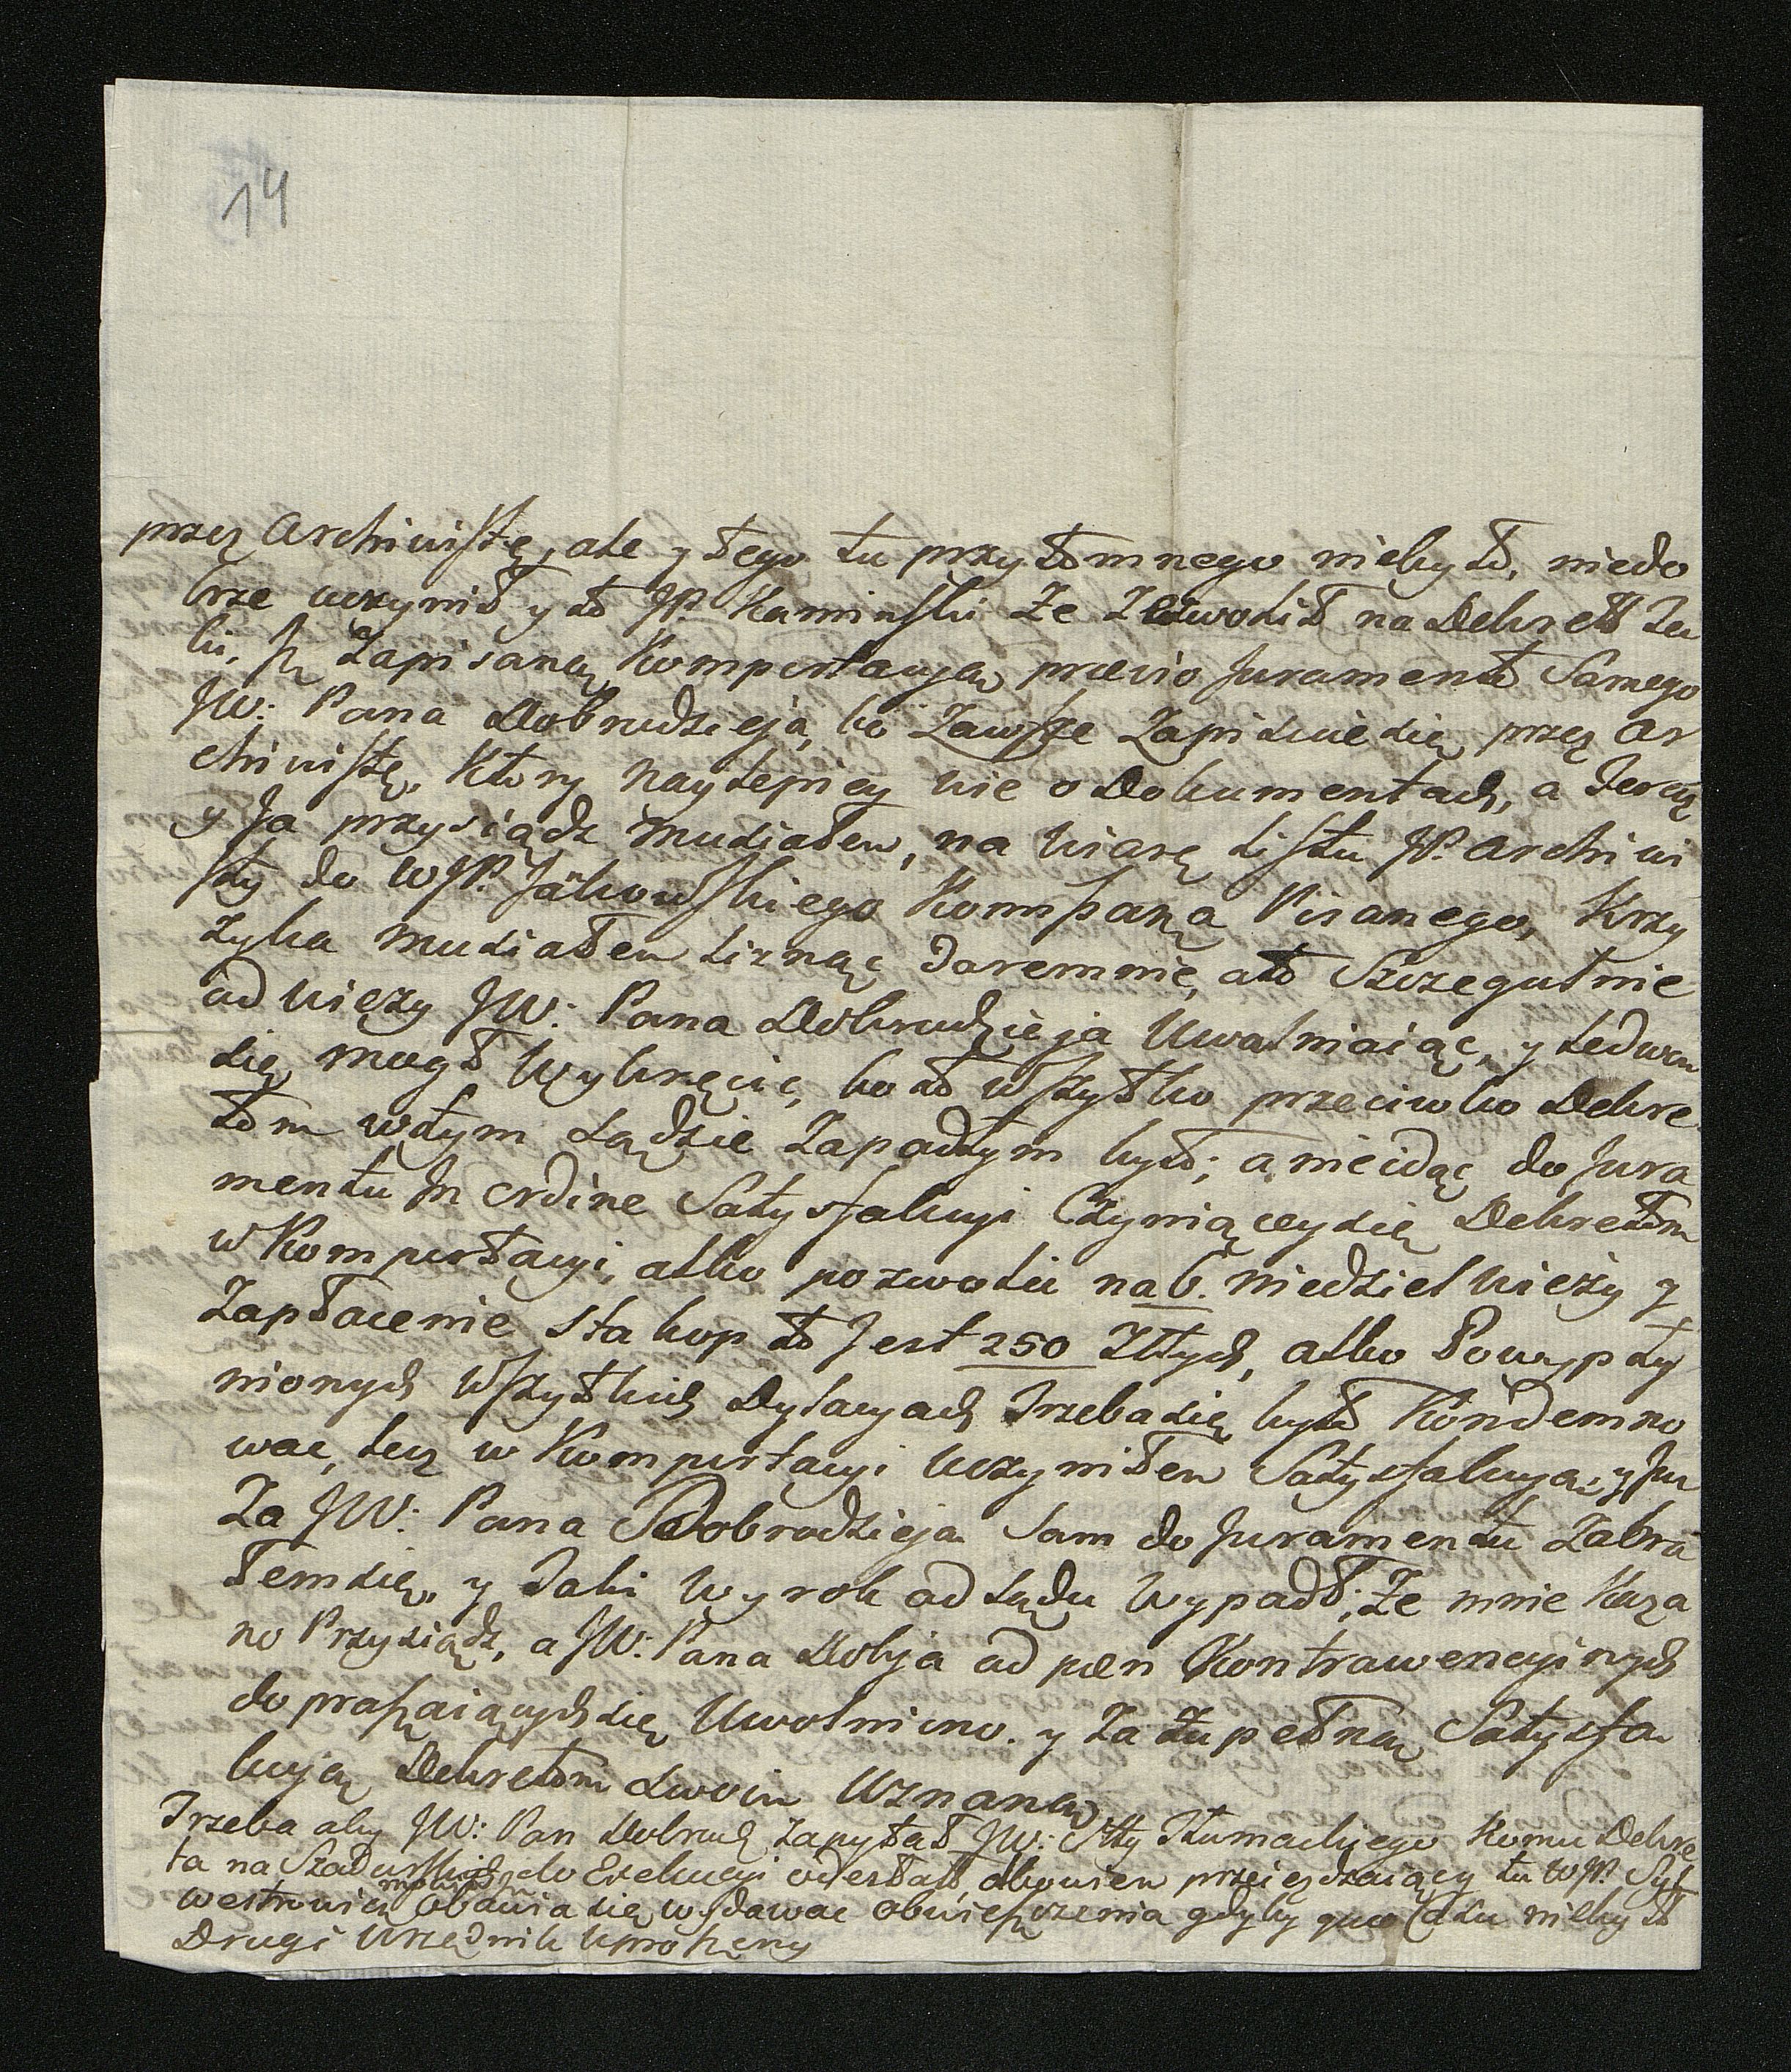 14
przez Archiwistę, ale y tego tu przytomnego niebyło, niedo
brze uczynił y to JP. Kaminski że zezwolił na Dekret Ju
li, Zapisaną Komportacyą przecio Jurament Samego
JW: Pana Dobrodzieja, bo Zawsze Zapisuie się przez Ar
chiwistę, który naylepiey wie o Dokumentach, a teraz
y Ja przysiądz musiałem, na wiarę Listu JP. Archiwi
sty do WJP. Jakowskiego Kompana Pisanego, Krzy
żyka musiałem liznąć daremnie, a to Szczegulnie
od wieży JW: Pana Dobrodzieja Uwalniaiąc, y ledwom
się mógł wykręcić, bo to wszystko przeciwko Dekre
tom w tym Sądzie zapadłym było; a nie idąc do Jura
mentu In ordine Satysfakcyi Czyniącey się Dekretom
w Komportacyi, albo pozwolić na 6. niedziel wieży y
Zapłacenie sta kop to Jest 250 Złtych, albo Po uczy
nionych wszystkich Dylacyach Trzeba się było Kondemno
wać, lecz w Komportacyi uczyniłem Satysfakcyą, y Ju
Za JW: Pana Dobrodzieja Sam do Juramentu Zabra
łem się, y Taki wyrok od Sądu wypadł, że mnie Kaza
no Przysiądz, a JW: Pana Dobja od pen Kontrawencyinych
dopraszaiących się Uwolniono. y za zupełną Satysfa
kcyą Dekretom Swoim Uznano.
Trzeba aby JW: Pan Dobrodz zapytał JW: Stty Tłumackiego Komu Dekre
ta na Szadurskich do Exekucyi odesłał, albowiem przeieżdzaiący tu WJP. Syl
westrowicz mówił że obawia się wydawać obwieszczenia gdyby quo casu niebył
Drugi Urzędnik Uproszony